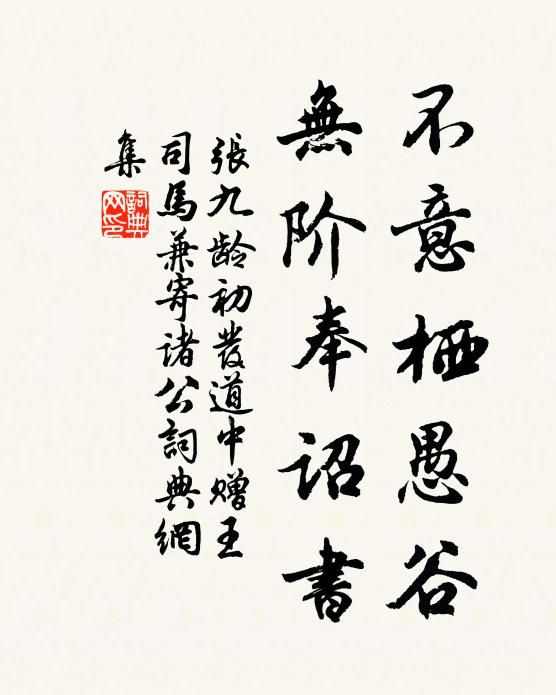 不意栖愚谷
無阶奉诏書
張九龄初發道中赠王
司馬兼寄诸公詞典網
集
詞典
网印